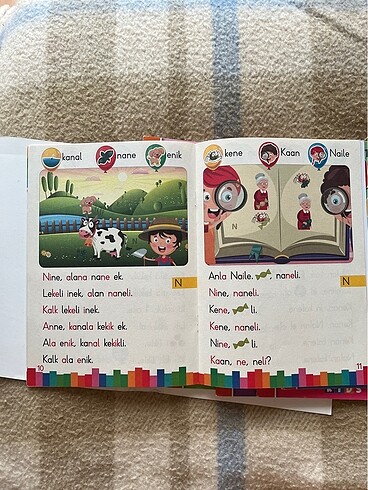 kanal nane enik
Nine, alana nane ek.
Lekeli inek, alan naneli.
Kalk lekeli inek.
Anne, kanala kekik ek.
Ala enik, kanal kekikli.
Kalk ala enik.
N
10
kene Kaan Naile
N
Anla Naile. , naneli.
Nine, naneli.
Kene, li.
Kene, naneli.
Nine, li.
Kaan, ne, neli?
N
11